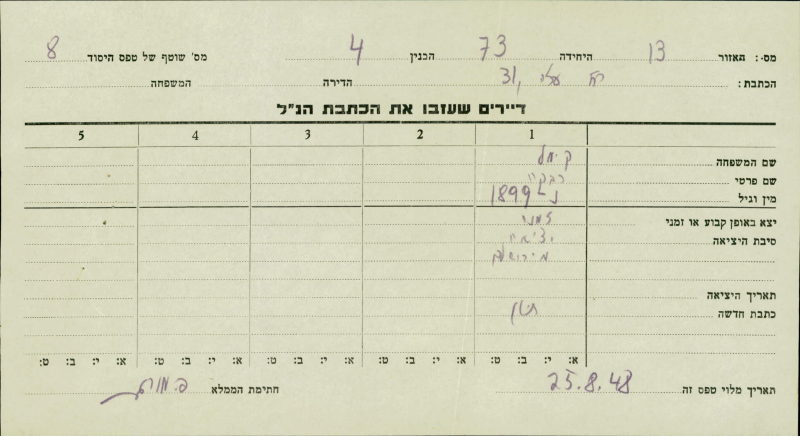 מס׳: האזור 13 היחידה 73 הבנין 4 מס׳ שוטף של טפס היסוד 8
הכתבת: רח עלי 31, הדירה המשפחה
דיירים שעזבו את הכתבת הנ״ל
1 2 3 4 5
שם המשפחה
שם פרטי רבקה
מין וגיל נ 1899
יצא באופן קבוע או זמני זמני
סיבת היציאה יציאה
מירושלים
תאריך היציאה
כתבת חדשה
א: י: ב: ט: א: י: ב: ט: א: י: ב: ט: א: י: ב: ט: א: י: ב: ט:
תאריך מלוי טפס זה 25.8.48 חתימת הממלא